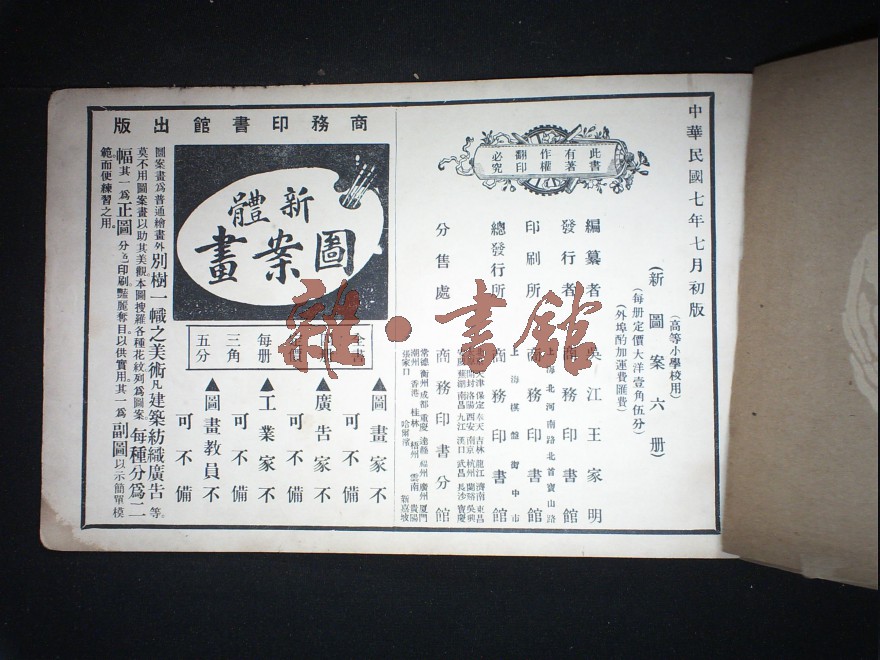 中華民國七年七月初版
(高等小學校用)
(新圖案六册)
(每册定價大洋壹角伍分)
(外埠酌加運費匯費)
此書
有著
作權
翻印
必究
編纂者 吳江王家明
發行者 商務印書館
上海北河南路北首寶山路
印刷所 商務印書館
上海棋盤街中市
總發行所 商務印書館
分售處 商務印書分館
天津保定奉天吉林龍江濟南東昌
開封洛陽西安南京杭州蘭谿吳興
安慶蕪湖南昌九江漢口武昌長沙寶慶
常德衡州成都重慶達縣福州廣州厦門
潮州香港桂林梧州雲南貴陽
張家口哈爾濱新嘉坡
商務印書館出版
新體
圖案畫
全書
每册
三角
五分
▲圖畫家不可不備
▲廣告家不可不備
▲工業家不可不備
▲圖畫教員不可不備
圖案畫爲普通繪畫外別樹一幟之美術凡建築紡織廣告等
莫不用圖案畫以助其美觀本圖搜羅各種花紋列爲圖案每種分爲二
幅其一爲正圖分色印刷豔麗奪目以供實用其一爲副圖以示簡單模
範而便練習之用
雜·書館